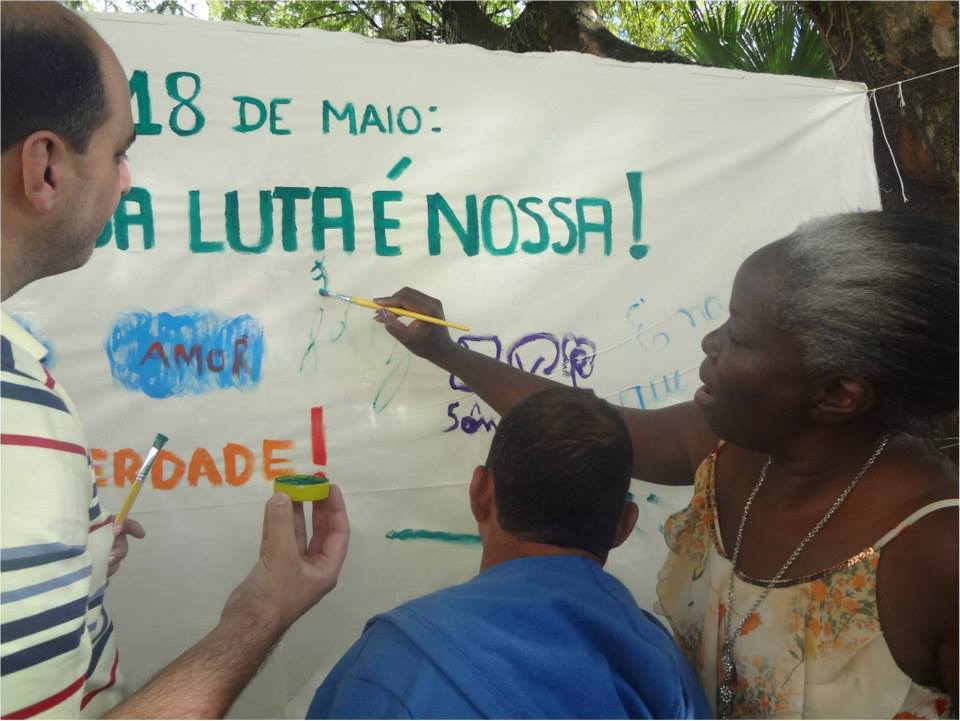 18 DE MAIO:
A LUTA É NOSSA!
AMOR
ERDADE!
Sôn